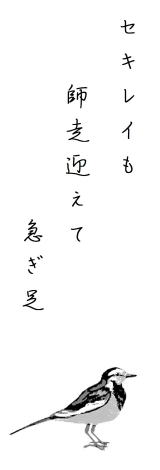 セキレイも
師走迎えて
急ぎ足